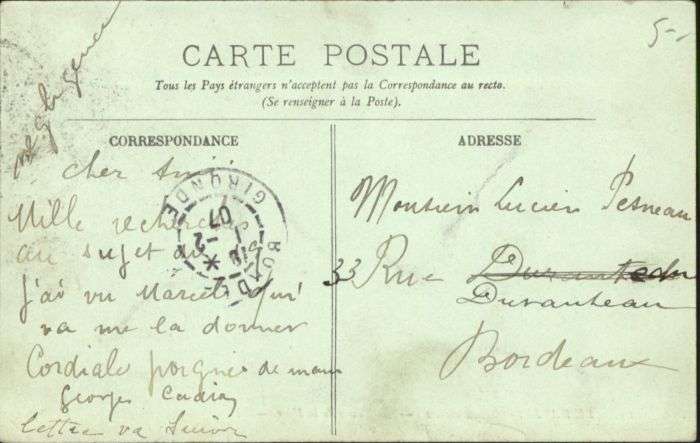 5-1
négligence
CARTE POSTALE
Tous les Pays étrangers n'acceptent pas la Correspondance au recto.
(Se renseigner à la Poste).
CORRESPONDANCE
cher Ami
Mille recherches
au sujet du
j'ai vu Marcel qui
va me la donner
Cordiale poignée de main
Georges
lettre va suivre
BORDEAUX GIRONDE
-2
07
ADRESSE
Monsieur Lucien Pesneau
33 Rue
Duranteau
Bordeaux